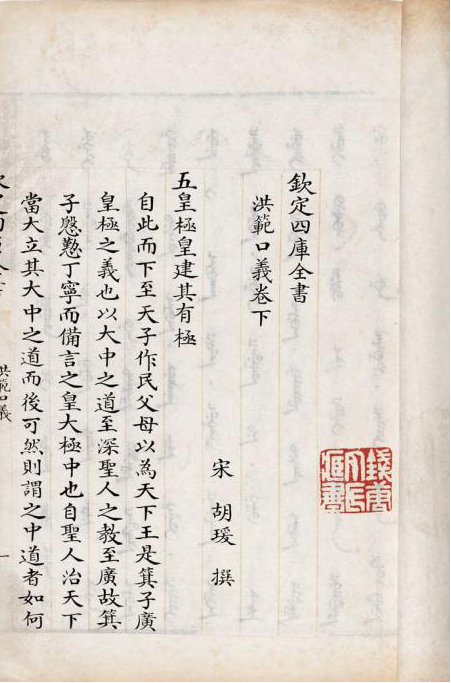 欽定四庫全書
洪範口義卷下
宋胡瑗撰
五皇極皇建其有極
自此而下至天子作民父母以為天下王是箕子廣
皇極之義也以大中之道至深聖人之教至廣故箕
子慇懃丁寧而備言之皇大極中也自聖人治天下
當大立其大中之道而後可然則謂之中道者如何
洪範口義
一